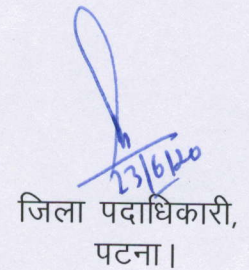 23/6/20
जिला पदाधिकारी,
पटना।